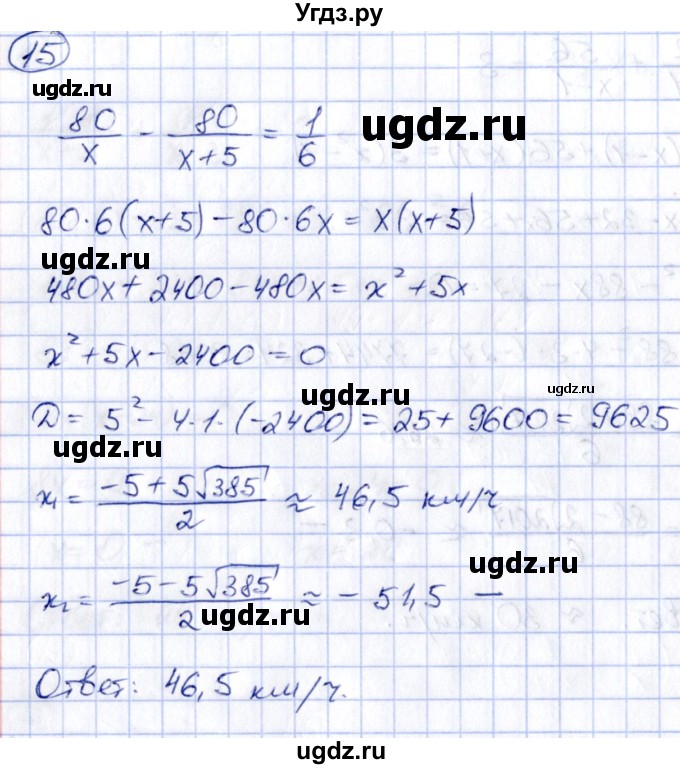 Угдз.ру
15
ugdz.ru
80/x - 80/(x+5) = 1/6
ugdz.ru
80·6(x+5)-80·6x = x(x+5)
ugdz.ru
480x+2400-480x = x²+5x
x²+5x-2400=0
ugdz.ru
ugdz.ru
D = 5²-4·1·(-2400) = 25+9600 = 9625
ugdz.ru
x₁ = (-5+5√385)/2 ≈ 46,5 км/ч
ugdz.ru
x₂ = (-5-5√385)/2 ≈ -51,5 —
ugdz.ru
Ответ: 46,5 км/ч.
ugdz.ru